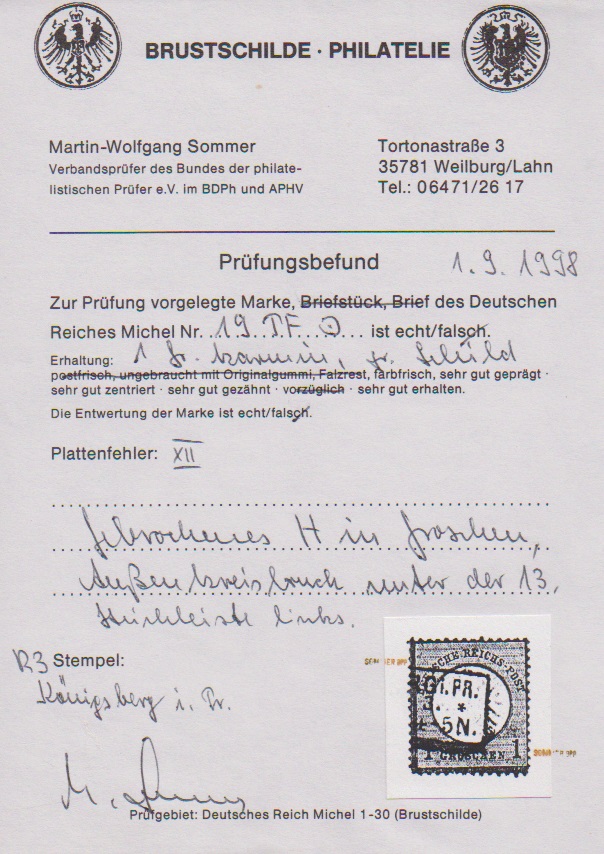 BRUSTSCHILDE · PHILATELIE
Martin-Wolfgang Sommer
Verbandsprüfer des Bundes der philate-
listischen Prüfer e.V. im BDPh und APHV
Tortonastraße 3
35781 Weilburg/Lahn
Tel.: 06471/26 17
Prüfungsbefund
1.9.1998
Zur Prüfung vorgelegte Marke, Briefstück, Brief des Deutschen
Reiches Michel Nr. 19 PF ... ist echt/falsch.
Erhaltung: 1 Gr. karmin, gr. Schild
postfrisch, ungebraucht mit Originalgummi, Falzrest, farbfrisch, sehr gut geprägt ·
sehr gut zentriert · sehr gut gezähnt · vorzüglich · sehr gut erhalten.
Die Entwertung der Marke ist echt/falsch.
Plattenfehler: XII
Gebrochenes H in Groschen,
Außenkreisbruch unter der 13.
Strichleiste links.
R3 Stempel:
Königsberg i. Pr.
SCHE REICHS-POST
GI.PR.
*
5N.
1 GROSCHEN 1
SOMMER BPP
M. Sommer
Prüfgebiet: Deutsches Reich Michel 1-30 (Brustschilde)